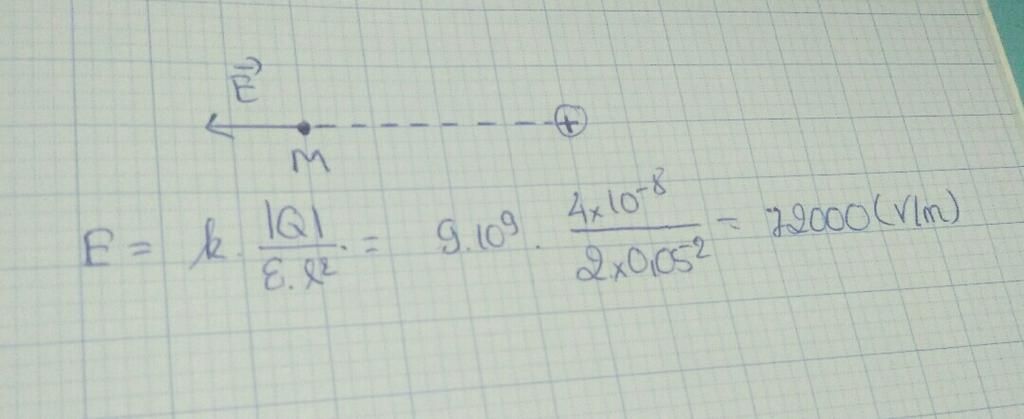 E⃗
M
E = k. |Q| / ε.r² = 9.10⁹. 4x10⁻⁸ / 2x0,05² = 72000 (V/m)